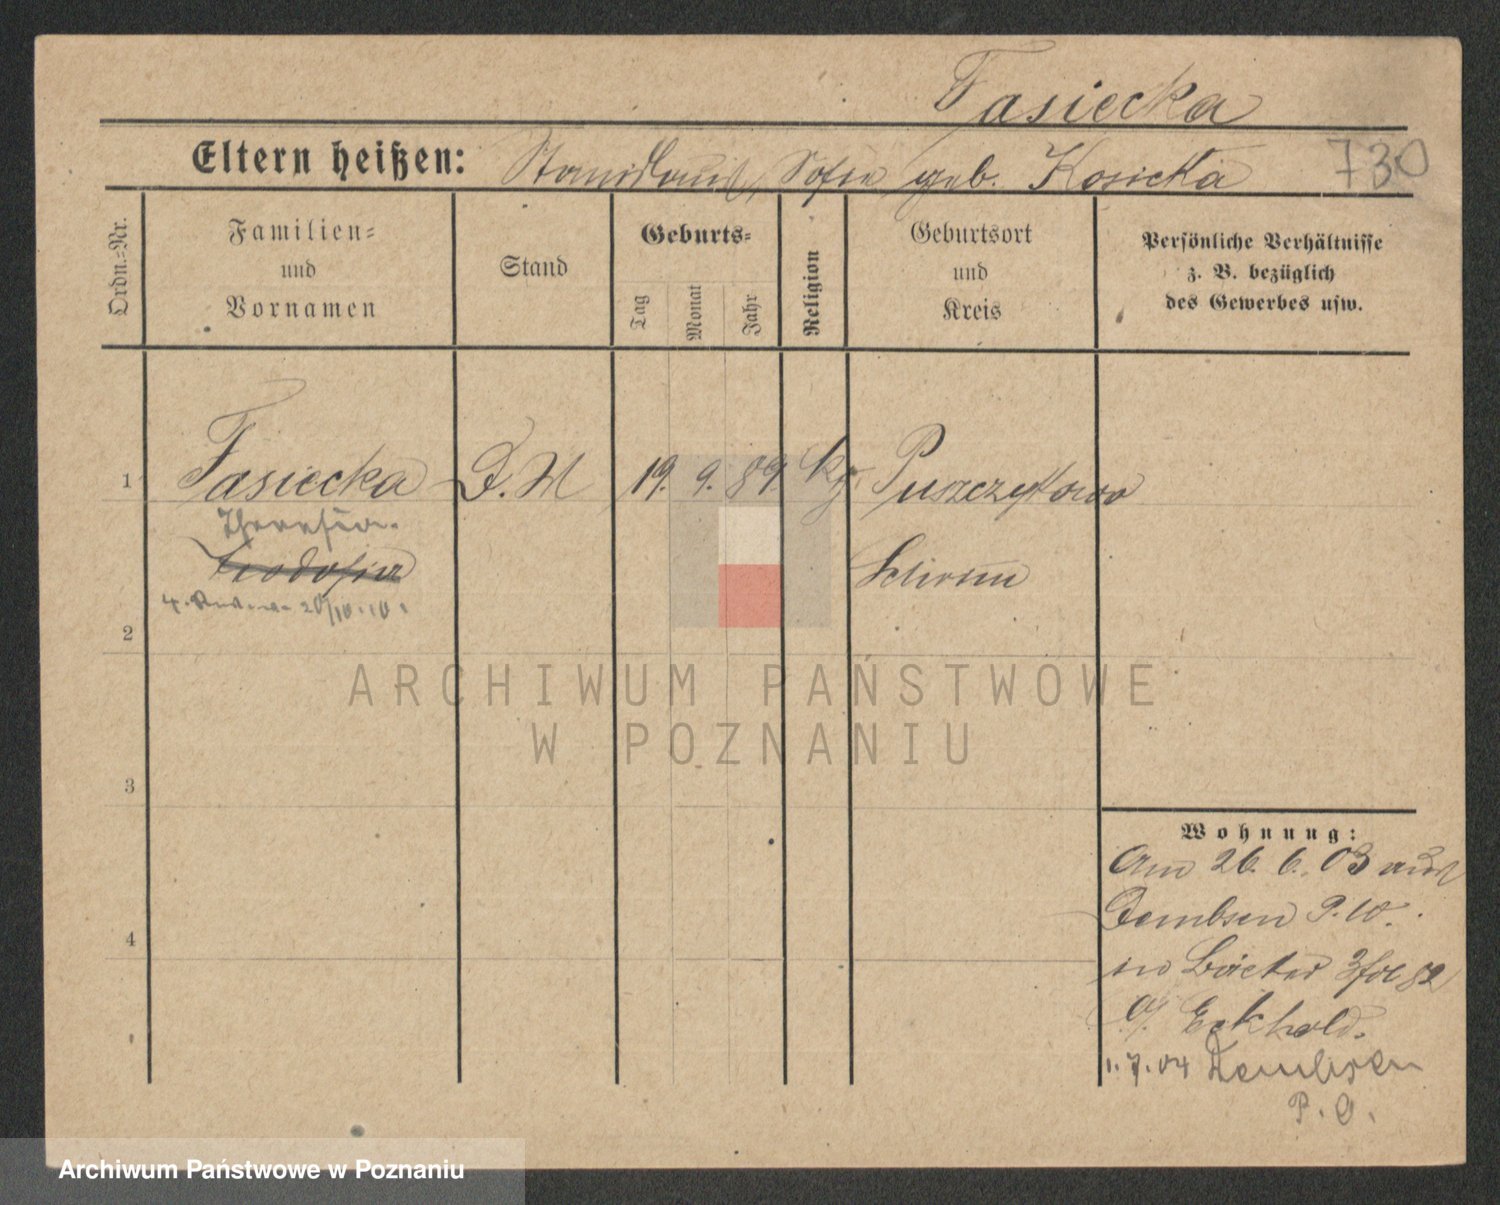 Fasiecka
Eltern heißen: Stanislaus, Sofie geb. Kosicka 730
Ordn.-Nr.
Familien- und Vornamen
Stand
Geburts-
Tag
Monat
Jahr
Religion
Geburtsort und Kreis
Persönliche Verhältnisse
z. B. bezüglich
des Gewerbes usw.
1 Fasiecka D. M 19. 9. 89. Kg. Puszczykowo
Theresia.
Teodosia Schrim
20/10.10.
2
3
4
Wohnung:
Am 26. 6. 03 aus
Dembsen P. W.
82
Eckhold.
1.7.04 Dembsen
P. O.
ARCHIWUM PAŃSTWOWE
W POZNANIU
Archiwum Państwowe w Poznaniu